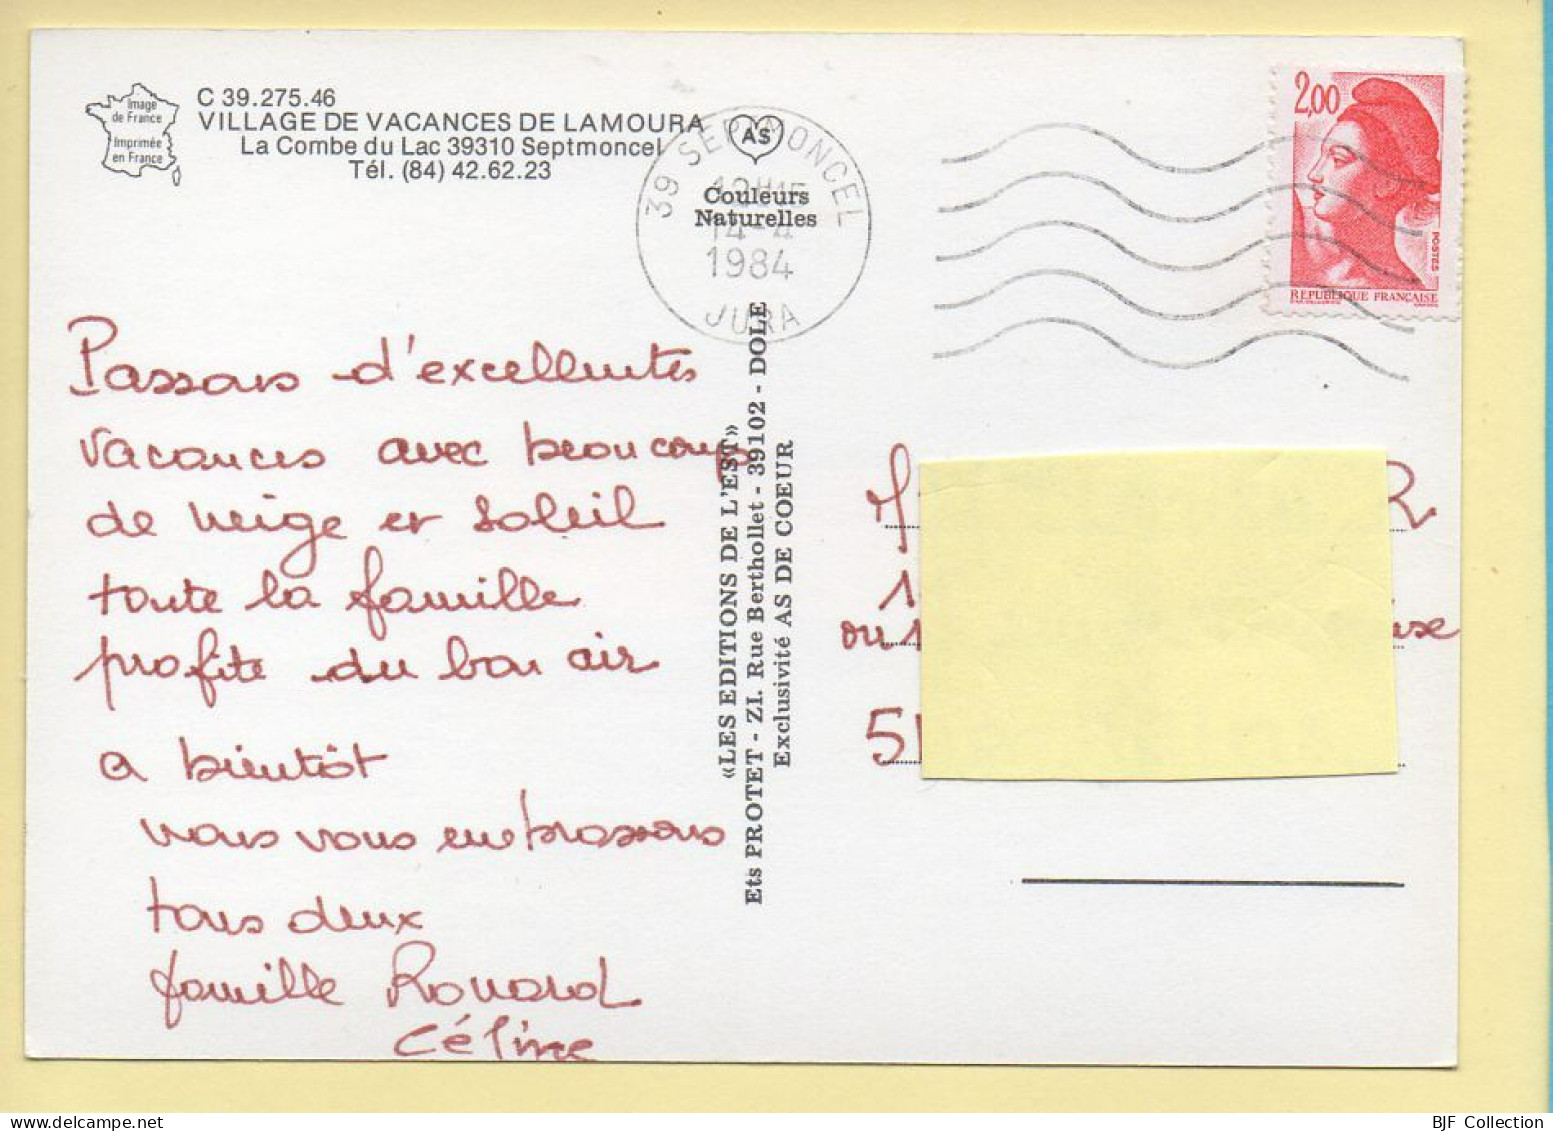 Image
de France
Imprimée
en France
C 39.275.46
VILLAGE DE VACANCES DE LAMOURA
La Combe du Lac 39310 Septmoncel
Tél. (84) 42.62.23
AS
Couleurs
Naturelles
39 SEPTMONCEL
14-4
1984
JURA
2,00
POSTES
REPUBLIQUE FRANÇAISE
Passons d'excellentes
vacances avec beaucoup
de neige et soleil
toute la famille
profite du bon air
a bientôt
nous vous embrassons
tous deux
famille Rouard
Céline
«LES EDITIONS DE L'EST»
Ets PROTET - ZI. Rue Berthollet - 39102 - DOLE
Exclusivité AS DE COEUR
R
1
ou 1
51
BJF Collection